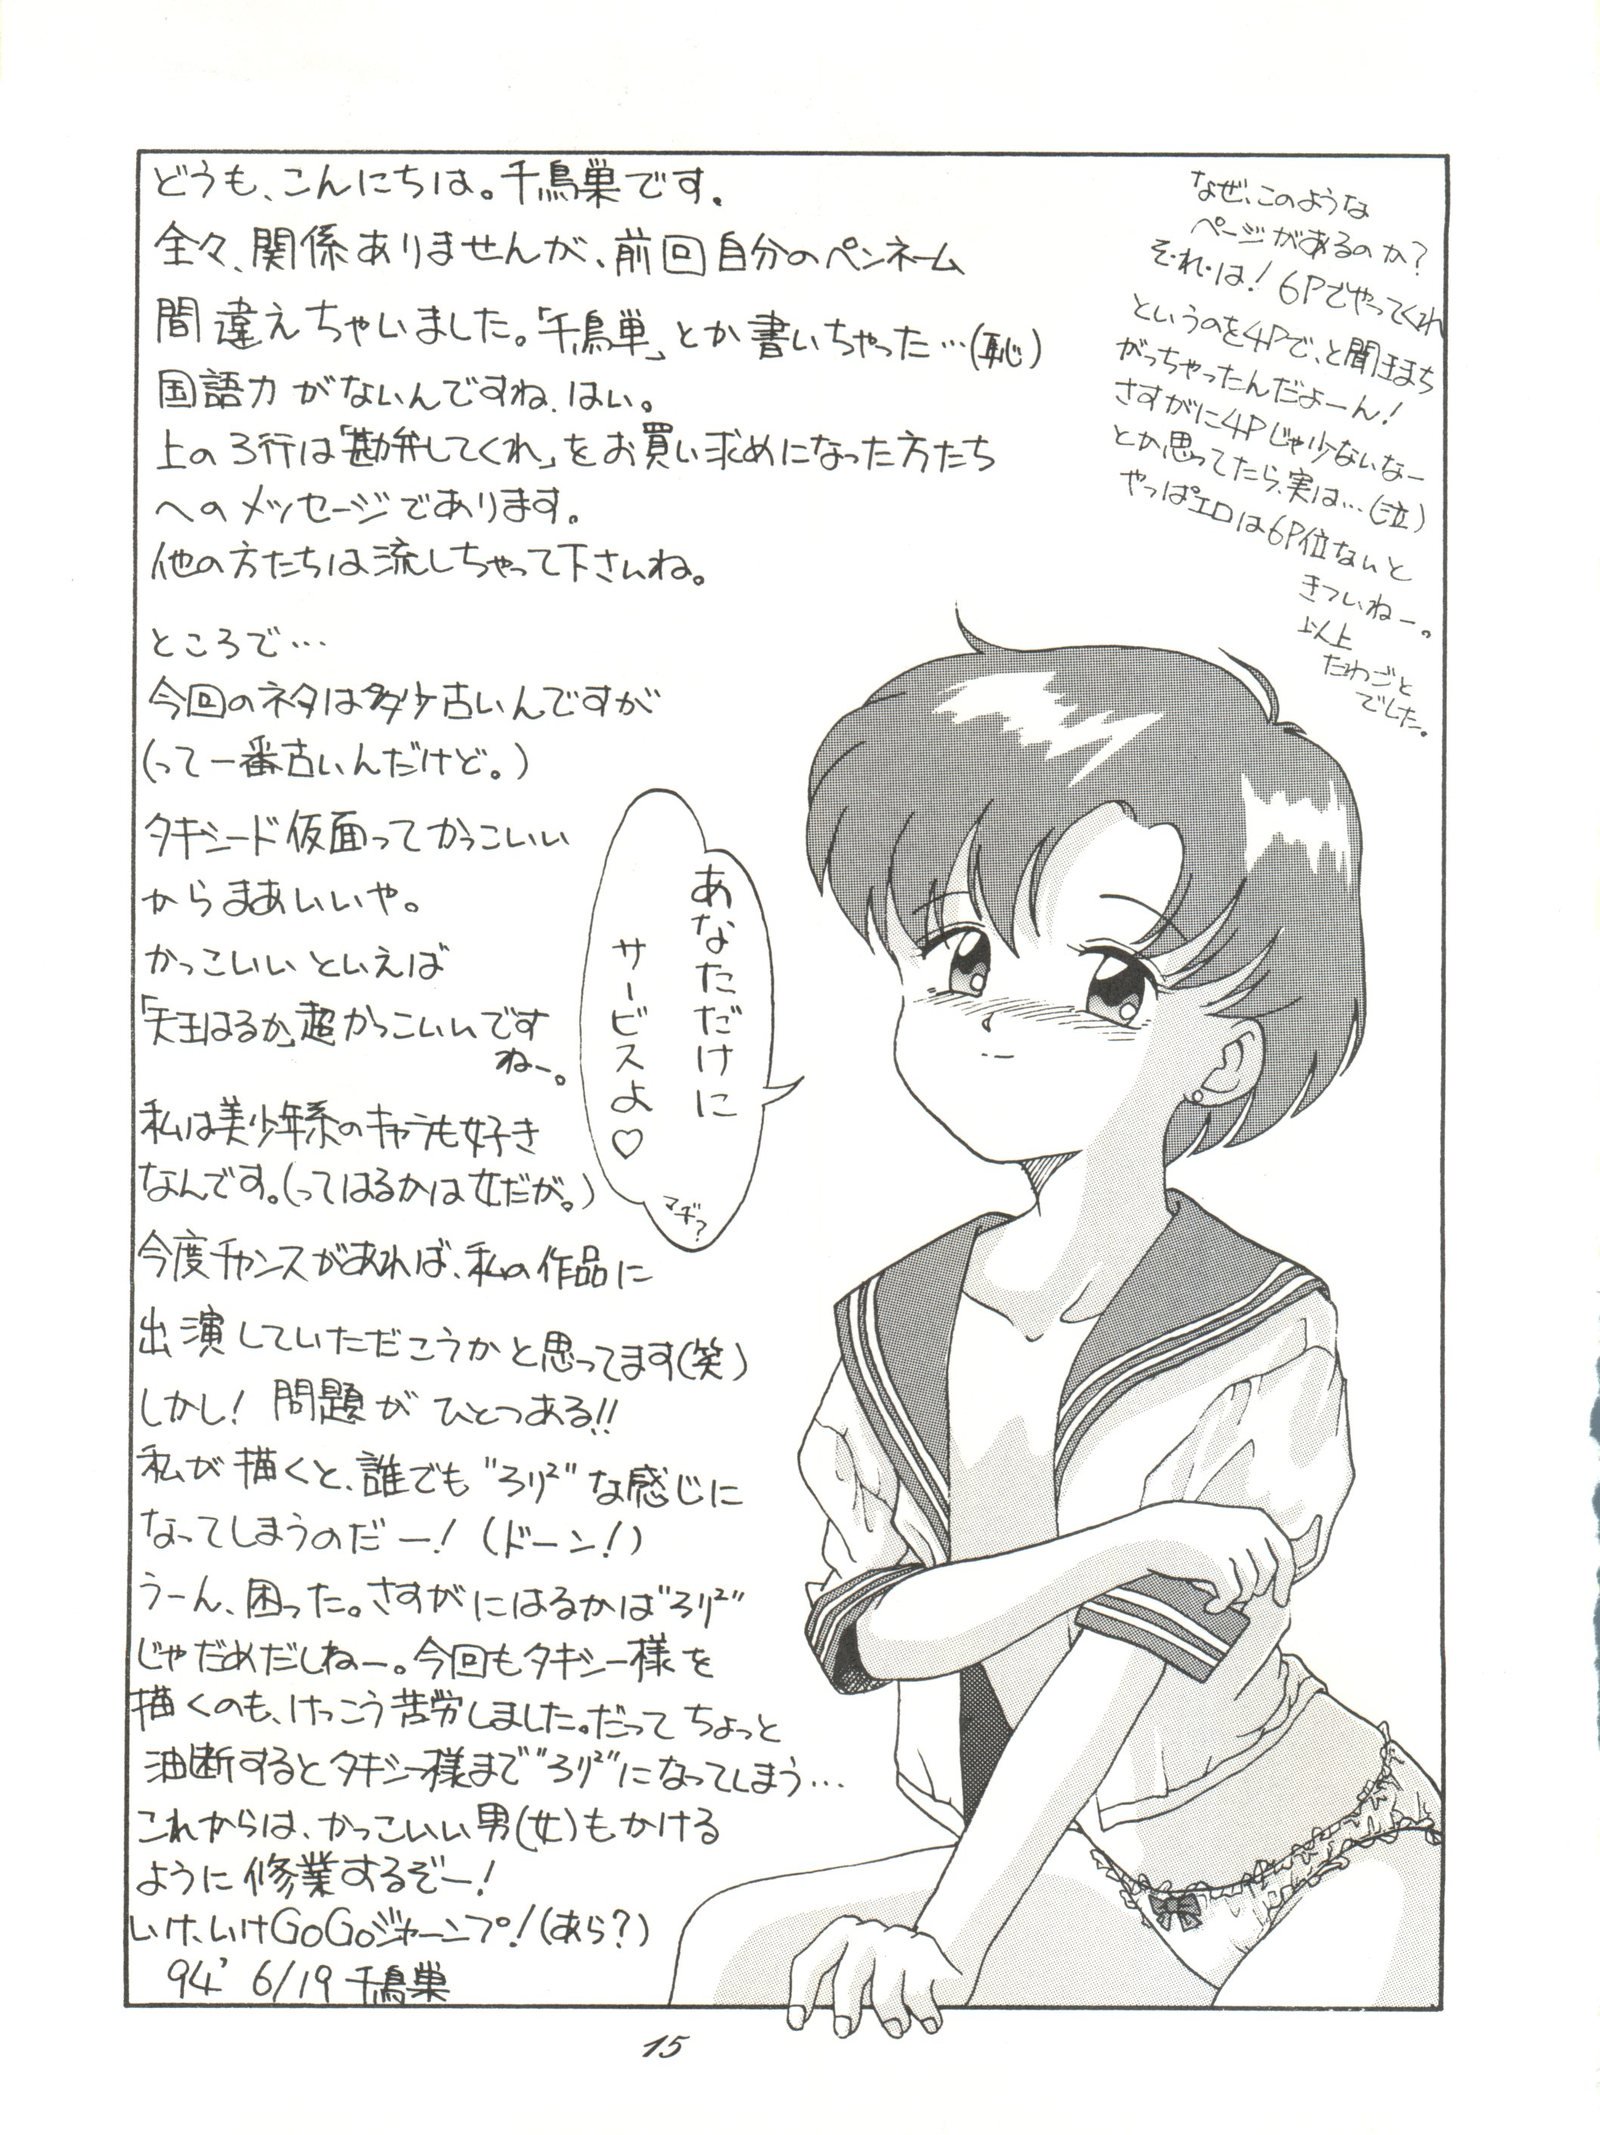 どうも、こんにちは。千鳥巣です.
全々、関係ありませんが、前回自分のペンネーム
間違えちゃいました。「千鳥単」とか書いちゃった…(恥)
国語力がないんですね、はい。
上の3行は「勘弁してくれ」をお買い求めになった方たち
へのメッセージであります。
他の方たちは流しちゃって下さいね。
ところで…
今回のネタは多少古いんですが
(って一番古いんだけど。)
タキシード仮面ってかっこいい
からまあいいや。
かっこいいといえば
「天王はるか」超かっこいいです
ねー。
私は美少年系のキャラも好き
なんです。(ってはるかは女だが。)
今度チャンスがあれば、私の作品に
出演していただこうかと思ってます(笑)
しかし! 問題がひとつある!!
私が描くと、誰でも"ろり²"な感じに
なってしまうのだー! (ドーン!)
うーん、困った。さすがにはるかは"ろり²"
じゃだめだしねー。今回もタキシー様を
描くのも、けっこう苦労しました。だってちょっと
油断するとタキシー様まで"ろり²"になってしまう…
これからは、かっこいい男(女)もかける
ように修業するぞー!
いけ、いけGoGoジャーンプ!(あら?)
94' 6/19 千鳥巣
なぜ、このような
ページがあるのか?
そ・れ・は! 6Pでやってくれ
というのを4Pで、と聞きまち
がっちゃったんだよーん!
さすがに4Pじゃ少ないなー
とか思ってたら、実は…(泣)
やっぱエロは6P位ないと
きついねー。
以上
たわごと
でした。
あなただけに
サービスよ♡
マヂ?
15